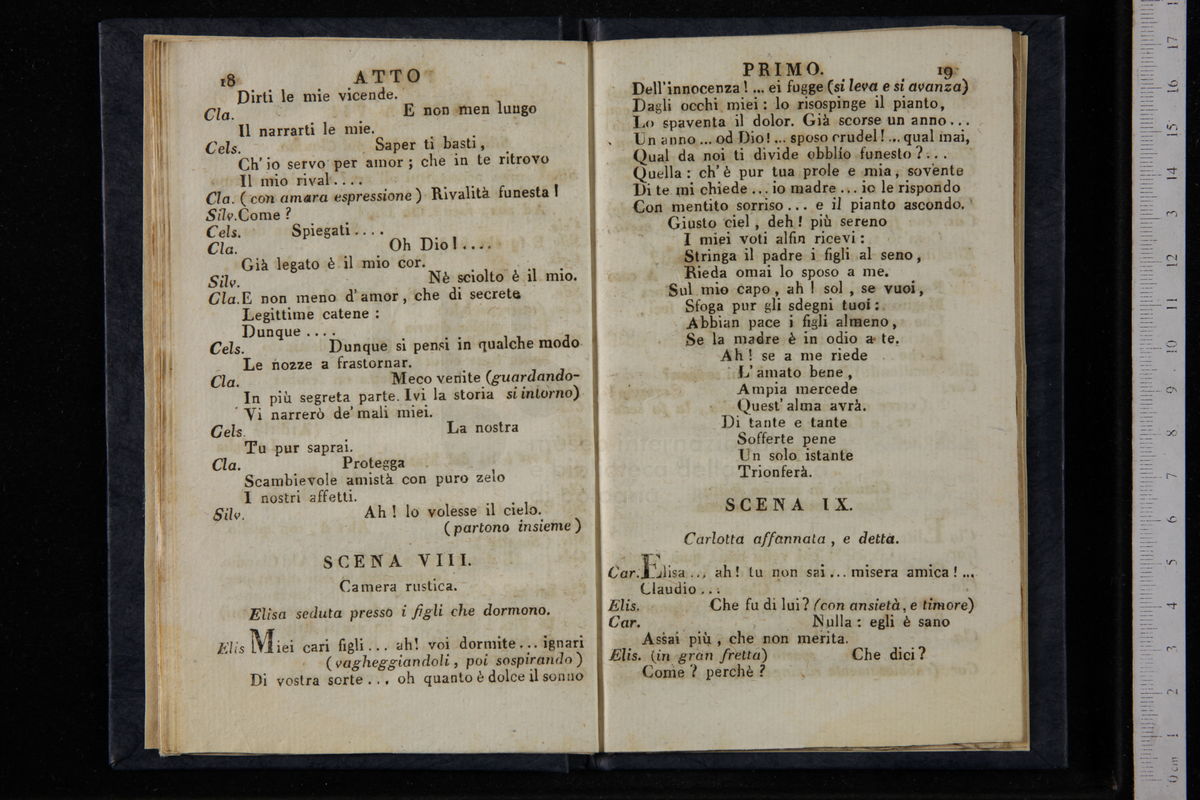 18 ATTO
Dirti le mie vicende.
Cla. E non men lungo
Il narrarti le mie.
Cels. Saper ti basti,
Ch'io servo per amor; che in te ritrovo
Il mio rival....
Cla. (con amara espressione) Rivalità funesta!
Silv. Come?
Cels. Spiegati....
Cla. Oh Dio!....
Già legato è il mio cor.
Silv. Nè sciolto è il mio.
Cla. E non meno d'amor, che di secrete
Legittime catene:
Dunque....
Cels. Dunque si pensi in qualche modo
Le nozze a frastornar.
Cla. Meco venite (guardando-
In più segreta parte. Ivi la storia si intorno)
Vi narrerò de' mali miei.
Cels. La nostra
Tu pur saprai.
Cla. Protegga
Scambievole amistà con puro zelo
I nostri affetti.
Silv. Ah! lo volesse il cielo.
(partono insieme)
SCENA VIII.
Camera rustica.
Elisa seduta presso i figli che dormono.
Elis Miei cari figli... ah! voi dormite... ignari
(vagheggiandoli, poi sospirando)
Di vostra sorte... oh quanto è dolce il sonno
PRIMO. 19
Dell'innocenza!... ei fugge (si leva e si avanza)
Dagli occhi miei: lo risospinge il pianto,
Lo spaventa il dolor. Già scorse un anno...
Un anno... od Dio!... sposo crudel!... qual mai,
Qual da noi ti divide obblio funesto?...
Quella: ch'è pur tua prole e mia, sovente
Di te mi chiede... io madre... io le rispondo
Con mentito sorriso... e il pianto ascondo.
Giusto ciel, deh! più sereno
I miei voti alfin ricevi:
Stringa il padre i figli al seno,
Rieda omai lo sposo a me.
Sul mio capo, ah! sol, se vuoi,
Sfoga pur gli sdegni tuoi:
Abbian pace i figli almeno,
Se la madre è in odio a te.
Ah! se a me riede
L'amato bene,
Ampia mercede
Quest'alma avrà.
Di tante e tante
Sofferte pene
Un solo istante
Trionferà.
SCENA IX.
Carlotta affannata, e detta.
Car. Elisa... ah! tu non sai... misera amica!...
Claudio...
Elis. Che fu di lui? (con ansietà, e timore)
Car. Nulla: egli è sano
Assai più, che non merita.
Elis. (in gran fretta) Che dici?
Come? perchè?
0 cm 1 2 3 4 5 6 7 8 9 10 11 12 13 14 15 16 17